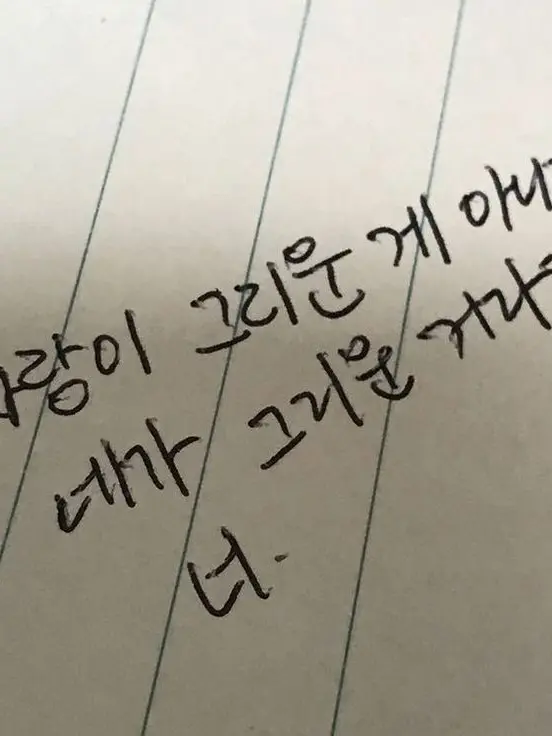 랑이 그리운 게 아니
네가 그리운 거라
너.